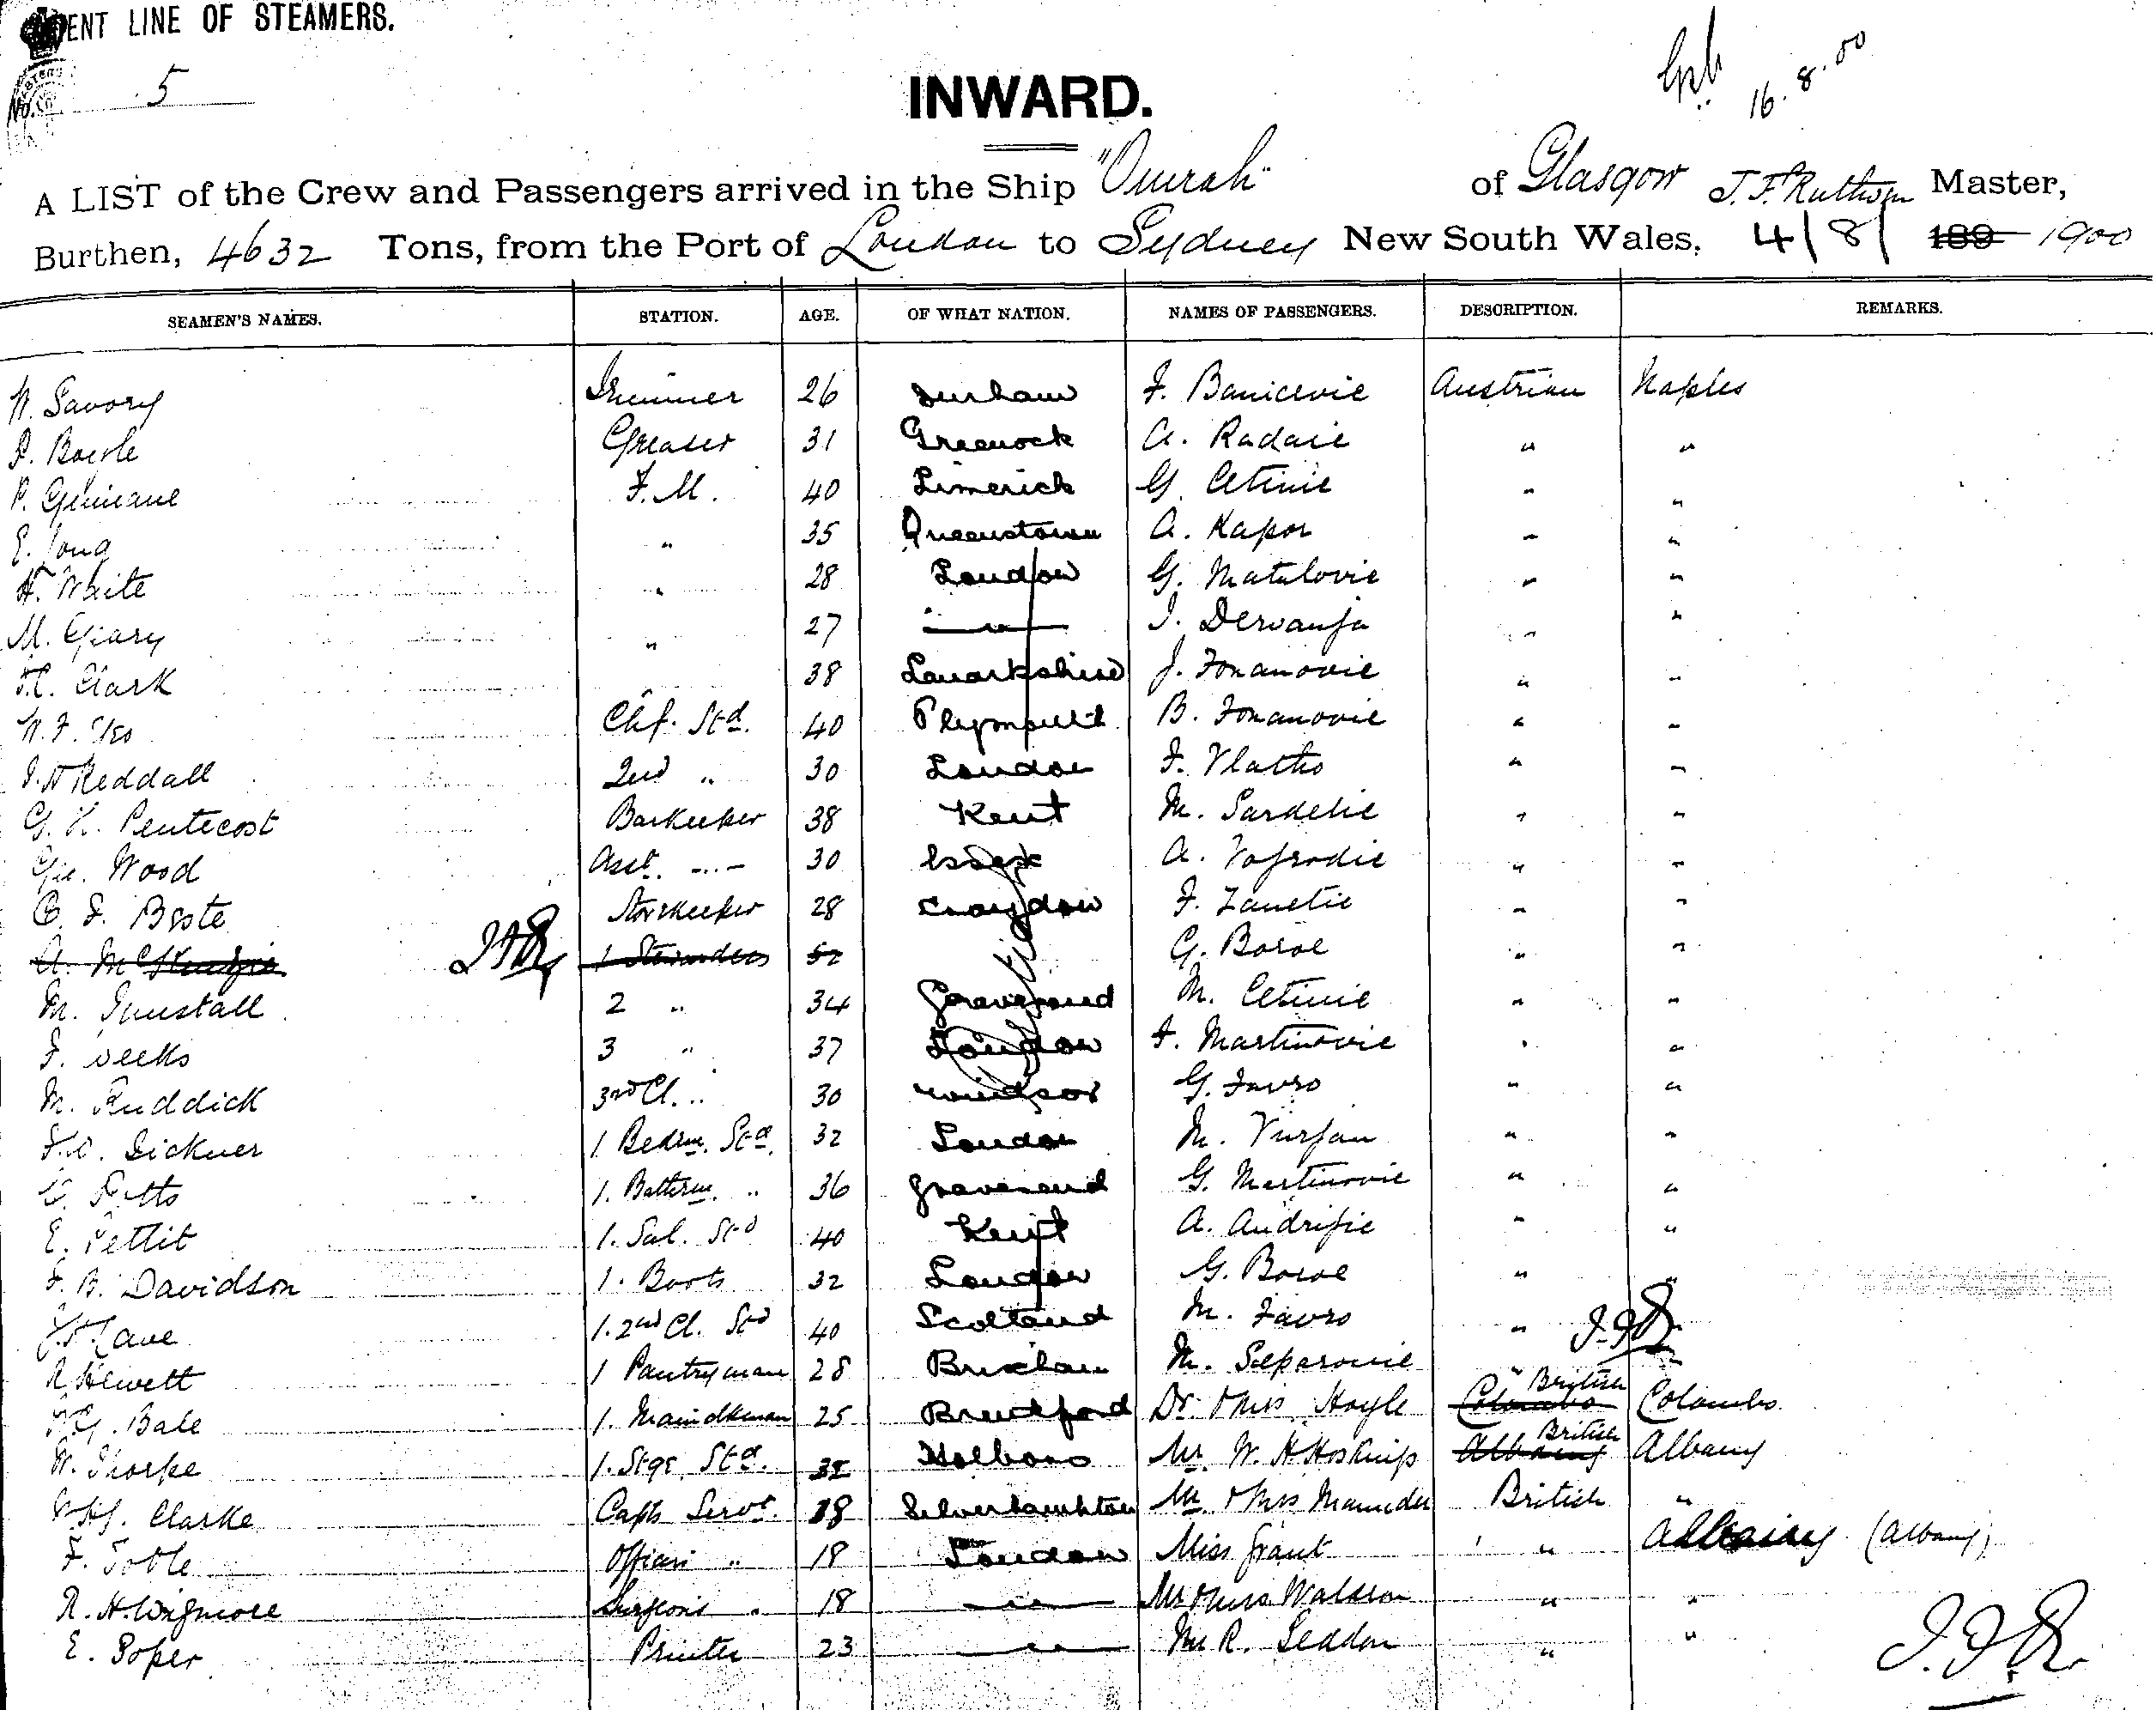 ENT LINE OF STEAMERS.
No. 5
INWARD.
16.8.00
A LIST of the Crew and Passengers arrived in the Ship "Omrah" of Glasgow J. F. Ruthven Master,
Burthen, 4632 Tons, from the Port of London to Sydney New South Wales, 4/8/ 189 1900
SEAMEN'S NAMES. STATION. AGE. OF WHAT NATION. NAMES OF PASSENGERS. DESCRIPTION. REMARKS.
W. Savory Trimmer 26 Durham F. Banicevic Austrian Naples
Greaser 31 Greenock A. Radaic " "
P. F.M. 40 Limerick G. Cetinic " "
E. " 35 Queenstown A. Kapor " "
H. White " 28 London G. Matulovic " "
M. Geary " 27 " I. Dervanja " "
Clark " 38 Lanarkshire J. Fonanovic " "
Chf. Std. 40 Plymouth B. Fonanovic " "
Reddall 2nd " 30 London F. Vlatho " "
G. H. Pentecost Barkeeper 38 Kent M. Sardelic " "
Geo. Wood Asst. " 30 Essex A. " "
C. F. Storekeeper 28 Croydon F. Zanetic " "
A. McKenzie J.F.R. 1 Stewardess 52 G. Boroe " "
M. Tunstall 2 " 34 Gravesend M. Cetinic " "
F. Weeks 3 " 37 London F. Martinovic " "
M. Ruddick 3rd Cl. " 30 Windsor G. Favro " "
Dickner 1. Bedrm. Std. 32 London M. " "
1. Bathrm. " 36 Gravesend G. Martinovic " "
E. Pettit 1. Sal. Std 40 Kent A. Andrijic " "
F. B. Davidson 1. Boots 32 London G. Boroe " "
Lane 1. 2nd Cl. Std 40 Scotland M. Favro " J.F.R.
R. Hewett 1 Pantryman 28 Brixham M. Separovic "
Bale 1. 25 Brentford Dr. & Mrs Hoyle Colombo British Colombo
W. Thorpe 1. Stge. Std. Holborn Mr. W. H. Hoskings Albany British Albany
Clarke Capts Servt. 18 Mr & Mrs Maunder British "
F. Officers " 18 London Miss Grant " Albany (Albany)
R. H. Wigmore Surgeons " 18 " Mr & Mrs Waldron " "
E. Soper Printer 23 " Mr R. Seddon " "
J.F.R.